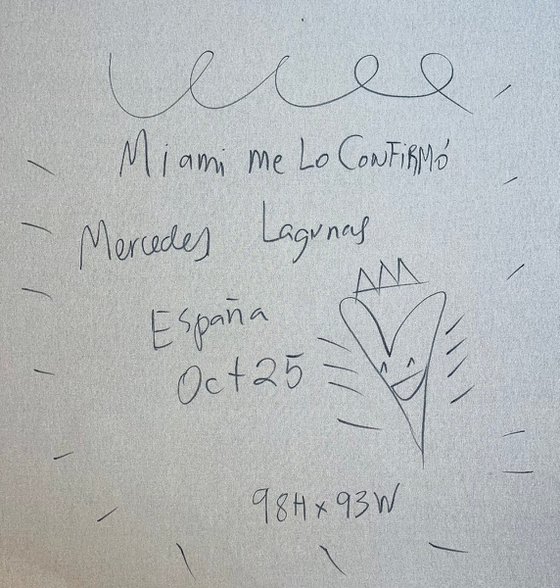 Miami me Lo CONFIRMÓ
Mercedes Lagunas
España
Oct 25
98H x 93W